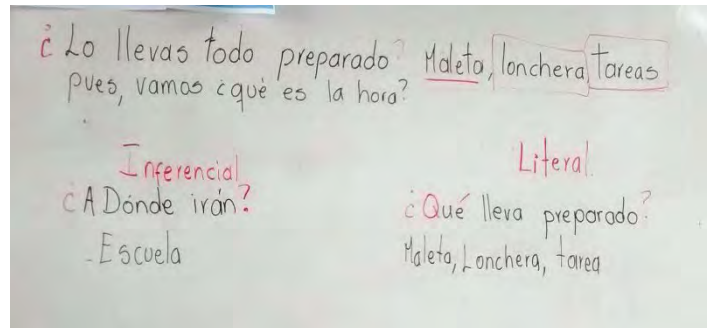 ¿Lo llevas todo preparado? Maleta, lonchera, tareas
pues, vamos ¿qué es la hora?
Inferencial
¿A Dónde irán?
- Escuela
Literal
¿Qué lleva preparado?
Maleta, Lonchera, tarea